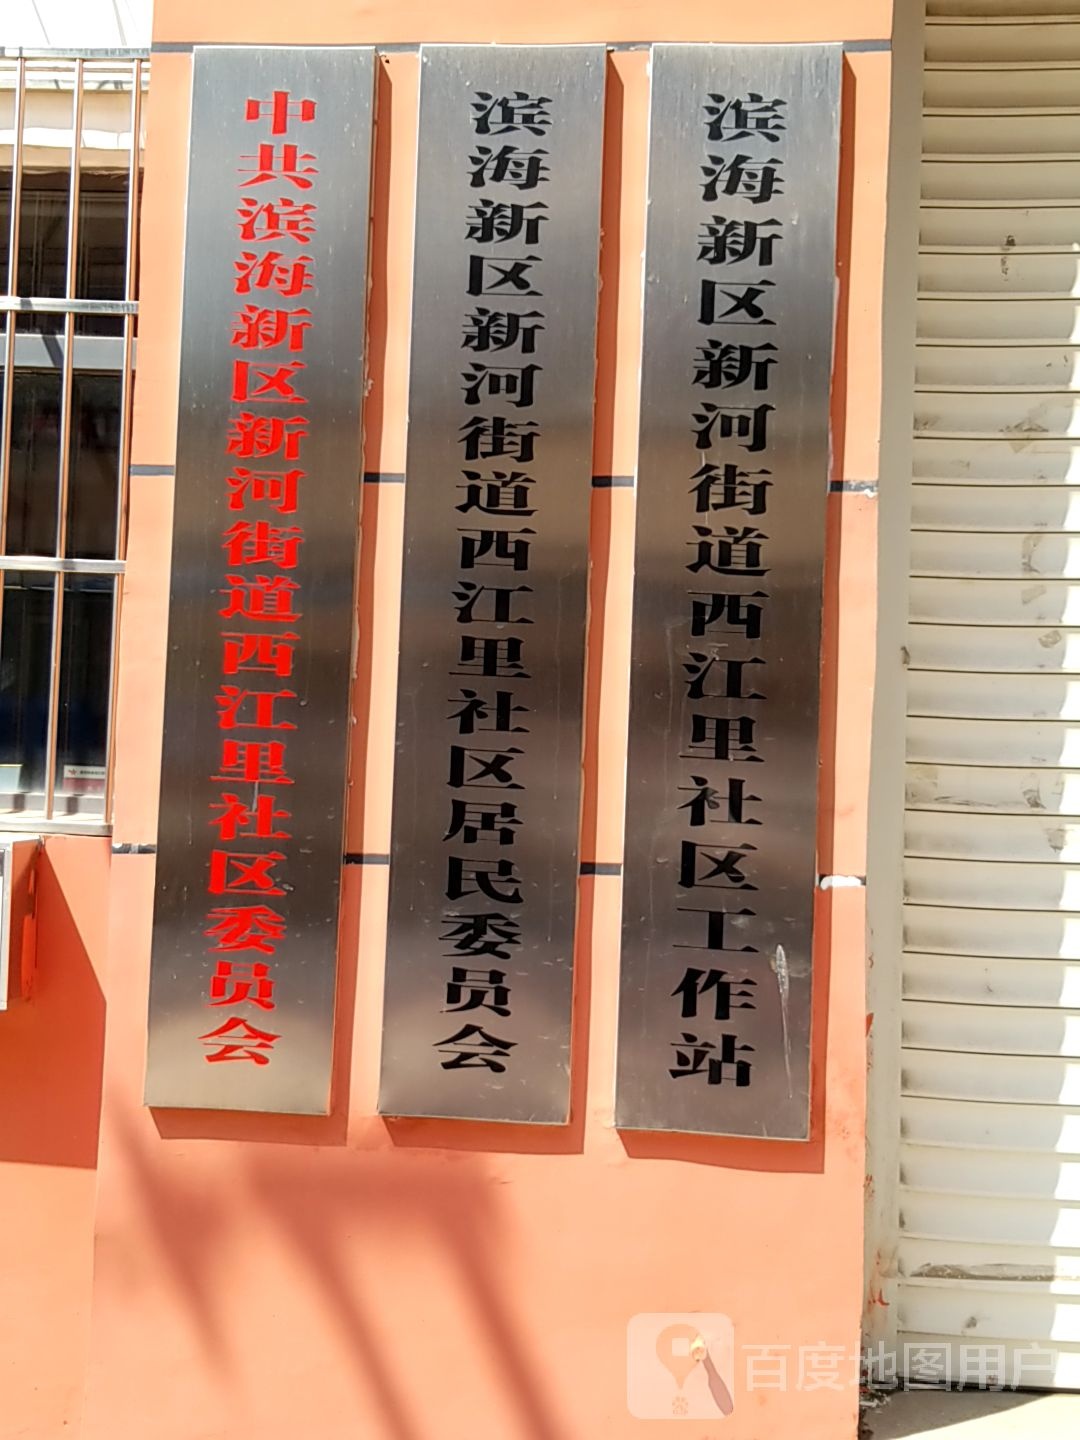 中共滨海新区新河街道西江里社区委员会
滨海新区新河街道西江里社区居民委员会
滨海新区新河街道西江里社区工作站
百度地图用户